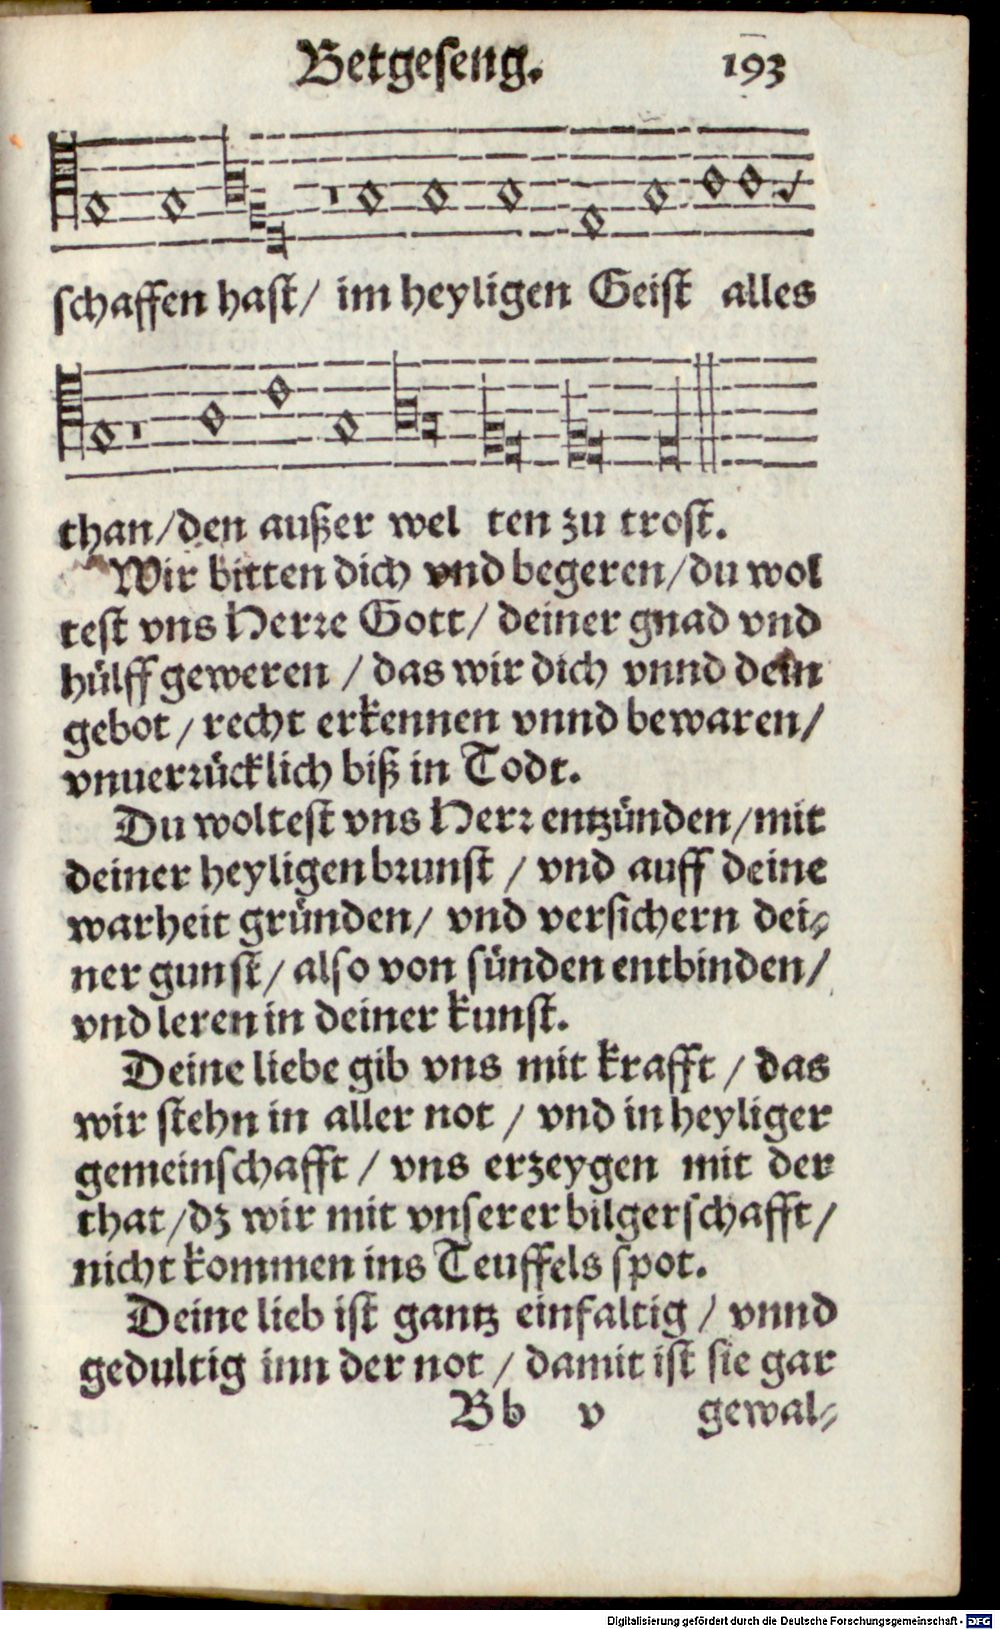 Betgeseng. 193
schaffen hast/ im heyligen Geist alles
than/den außer wel ten zu trost.
Wir bitten dich vnd begeren/du wol
test vns Herre Gott/ deiner gnad vnd
hülff geweren / das wir dich vnnd dein
gebot / recht erkennen vnnd bewaren/
vnuerrücklich biß in Todt.
Du woltest vns Herr entzünden/mit
deiner heyligen brunst / vnd auff deine
warheit gründen/ vnd versichern dei⸗
ner gunst/ also von sünden entbinden/
vnd leren in deiner kunst.
Deine liebe gib vns mit krafft / das
wir stehn in aller not / vnd in heyliger
gemeinschafft / vns erzeygen mit der
that/dz wir mit vnserer bilgerschafft/
nicht kommen ins Teuffels spot.
Deine lieb ist gantz einfaltig / vnnd
gedultig inn der not / damit ist sie gar
Bb v gewal⸗
Digitalisierung gefördert durch die Deutsche Forschungsgemeinschaft - DFG